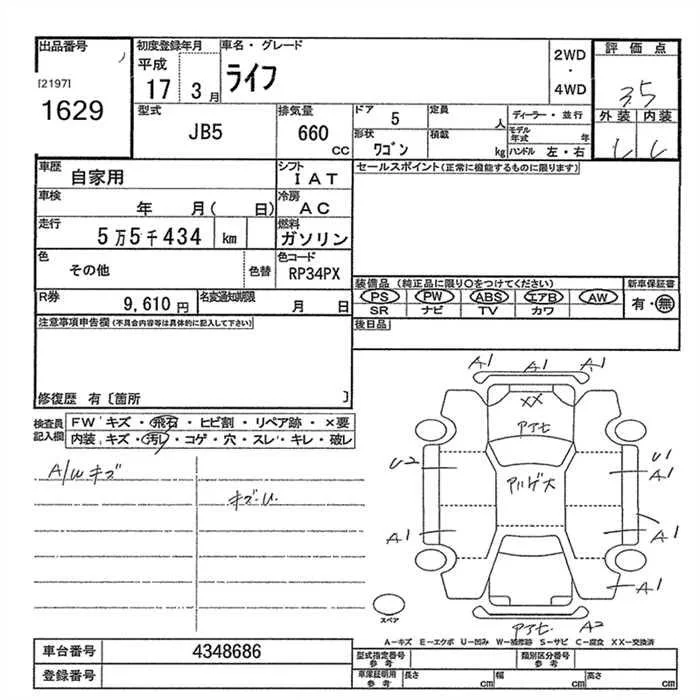 出品番号
[2197]
1629
初度登録年月
平成
17 3 月
車名・グレード
ライフ
2WD
・
4WD
評価点
3.5
外装 内装
型式
JB5
排気量
660 CC
ドア 5
定員 人
ディーラー・並行
形状 ワゴン
積載 kg
モデル年式 年
ハンドル 左・右
車歴
自家用
シフト
IAT
車検
年 月( 日)
冷房
AC
走行
5万5千434 km
燃料
ガソリン
色
その他
色替
色コード
RP34PX
R券
9,610 円
名変通知期限
月 日
セールスポイント(正常に機能するものに限ります)
装備品(純正品に限り○をつけてください)
新車保証書
PS PW ABS エアB AW
有・無
SR ナビ TV カワ
後日品
注意事項申告欄(不具合内容等は具体的に記入して下さい)
修復歴 有〔箇所 〕
検査員
記入欄
FW キズ・飛石・ヒビ割・リペア跡・×要
内装 キズ・汚レ・コゲ・穴・スレ・キレ・破レ
A/W キズ
キズ・U
A1 A1 A1
XX
アアヒ
U2
U1
A1
アルゲ大
A1
A1
A1
アアヒ
A2
スペア
A-キズ E-エクボ U-凹み W-補修跡 S-サビ C-腐食 XX-交換済
車台番号
4348686
登録番号
型式指定番号
参考
類別区分番号
参考
車庫証明用
参考
長さ cm
幅 cm
高さ cm